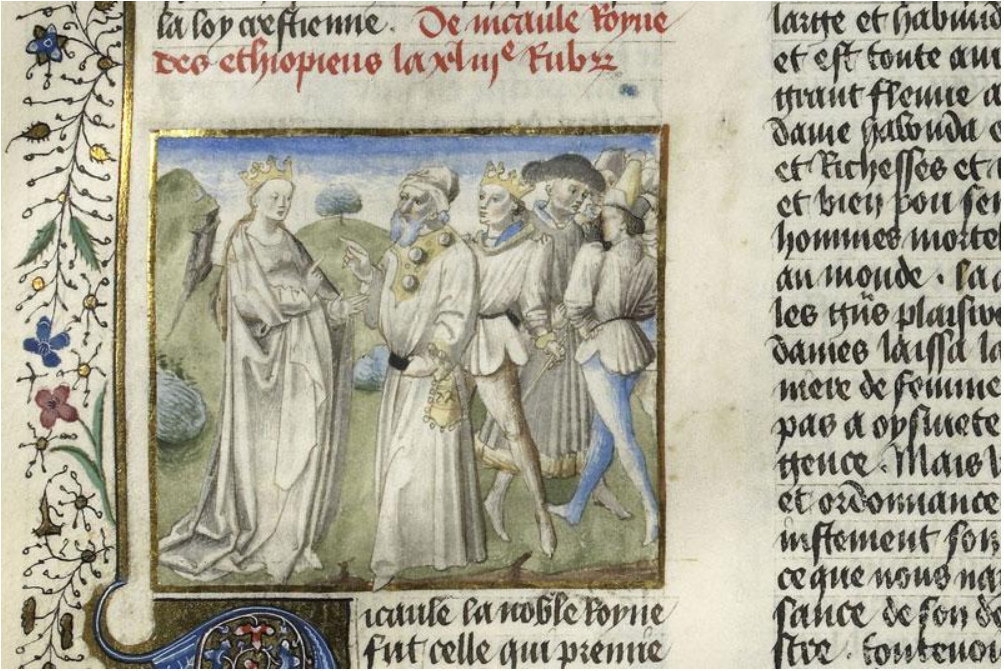 la loy crestienne. De nicaule Royne
des ethiopiens la xliiiᵉ Rubr
icaule la noble Royne
fut celle qui premie
large et habund
et est toute au
grant fleuue a
dame habonda e
et Richesses et
et bien pou sen
hommes mortel
au monde. la
les tres plaisir
dames laissa la
mere de femme
pas a oysiuete
gence. Mais
et ordonnance
iustement son
ce que nous na
sance de son d
stre. toutenoi